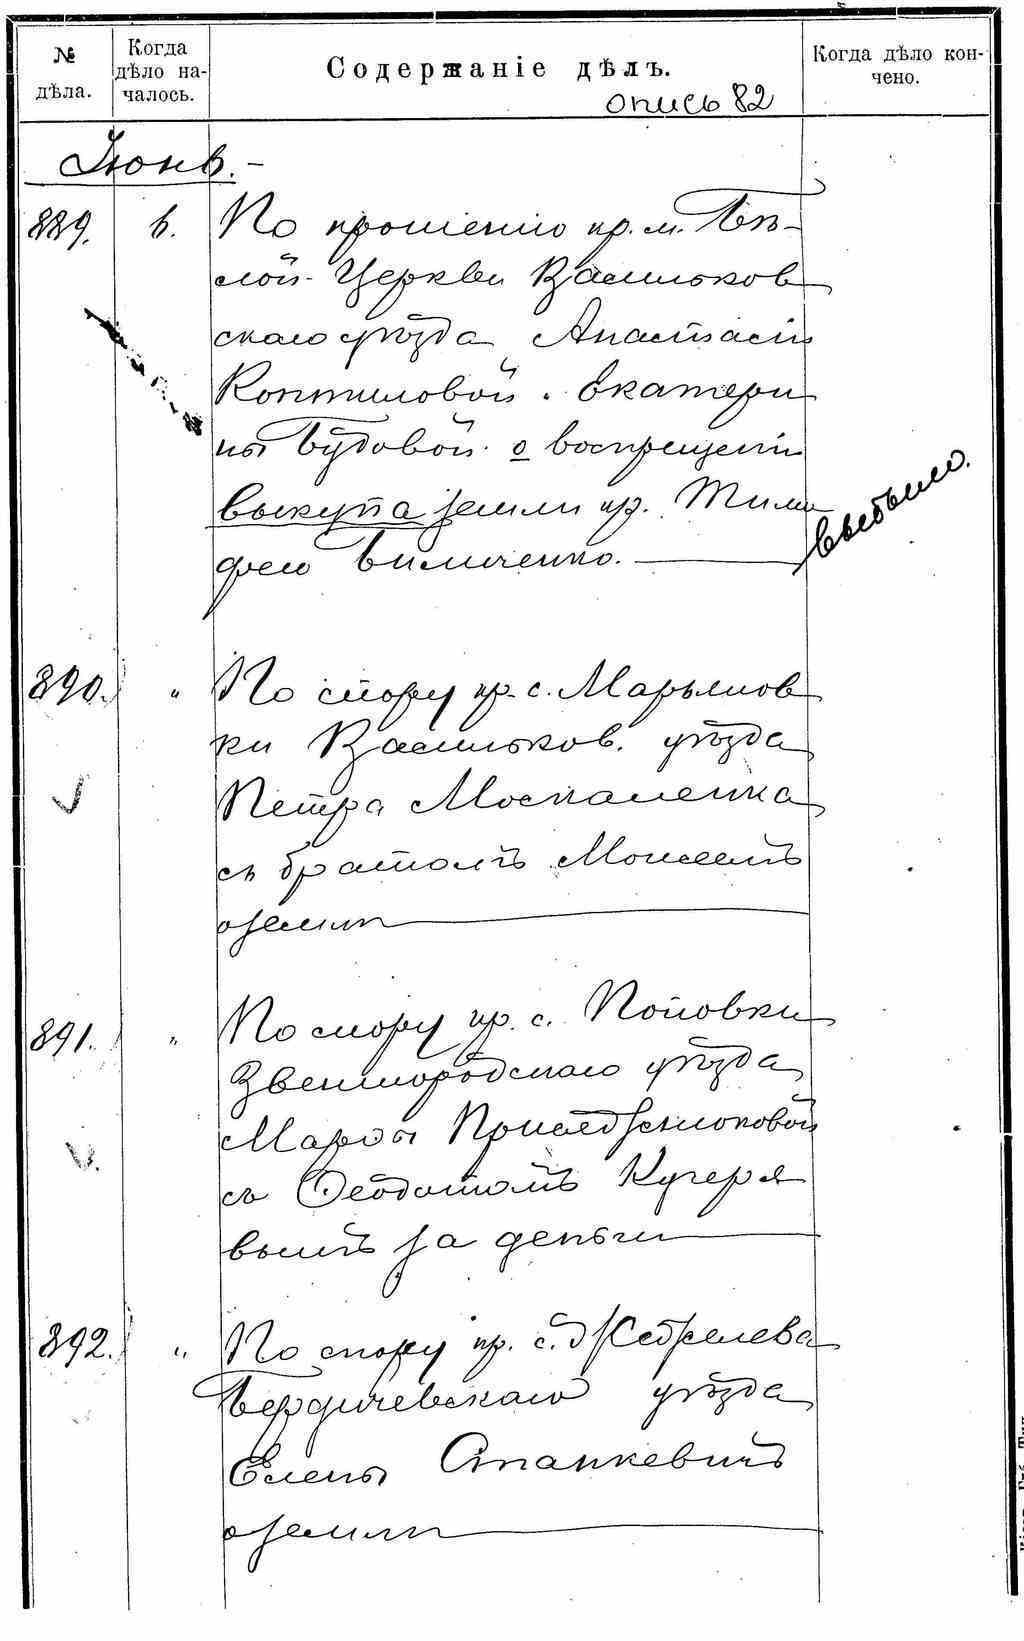 № дѣла.
Когда дѣло на-
чалось.
Содержаніе дѣлъ.
Когда дѣло кон-
чено.
опись 82
Іюнь.-
889. 6. По прошенію кр. м. Бѣ-
лой-Церкви Васильков
скаго уѣзда Анастасіи
Коптиловой . Екатери
ны Будовой о воспрещеніи
выкупа земли кр. Тимо
фею Биличенко.
выбыло.
890. " По спору кр. с. Марьянов
ки Васильков. уѣзда
Петра Москаленка
съ братомъ Моисеемъ
о земли
891. " По спору кр. с. Поповки
Звенигородскаго уѣзда
Марфы
съ Ѳеодотомъ Кучеря
вымъ за деньги
892. " По спору кр. с.
Бердичевскаго уѣзда
Елены Станкевичъ
о земли